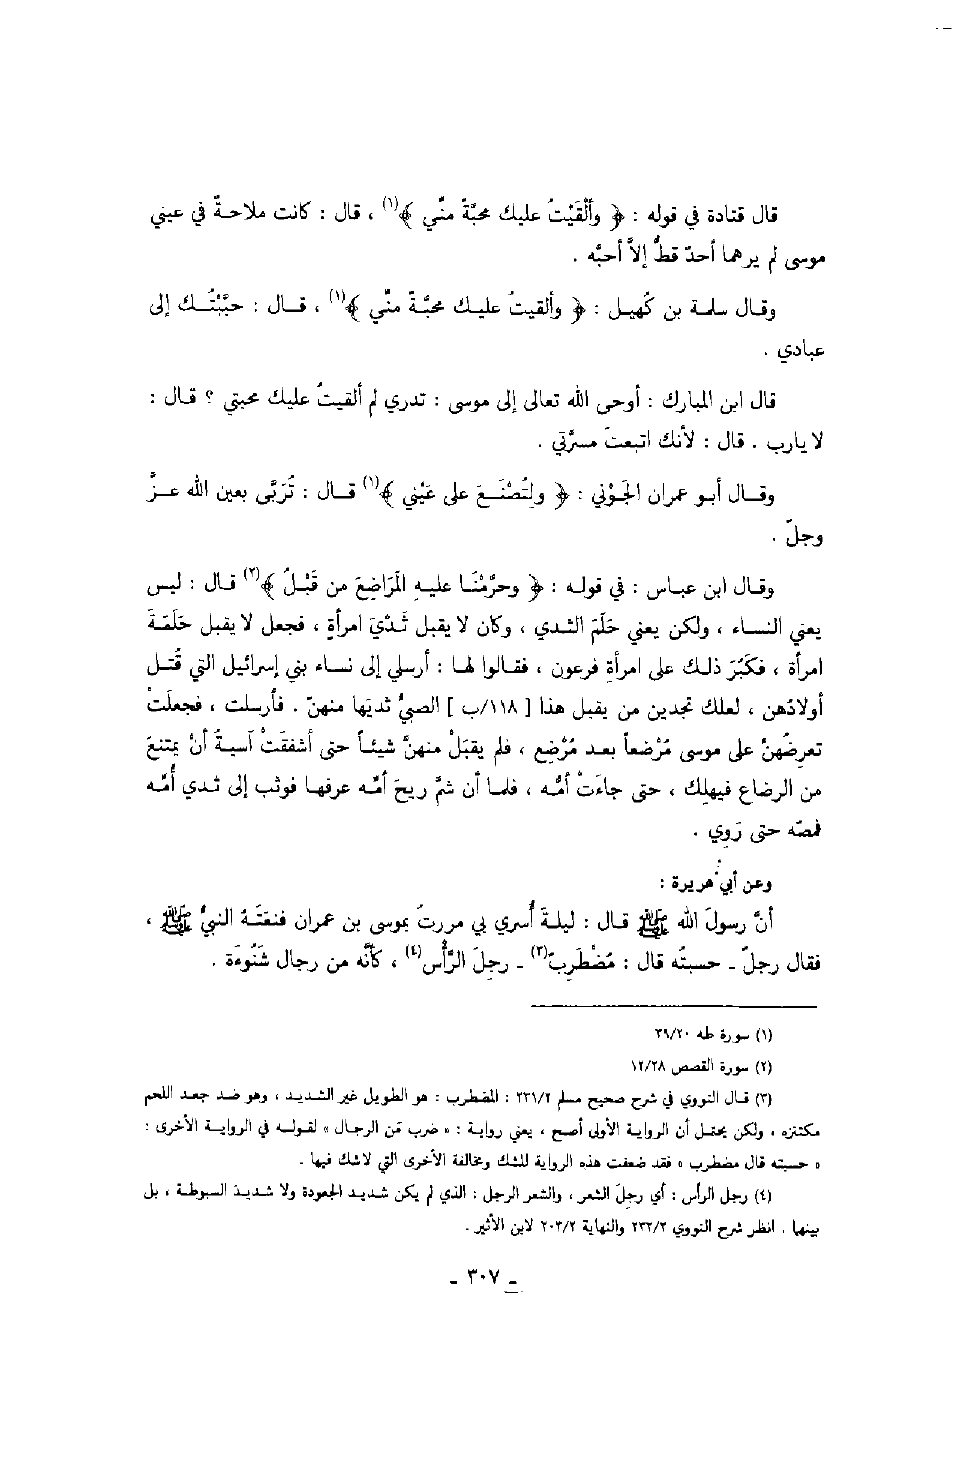 قال قتادة في قوله : ﴿ وأَلْقَيْتُ عليك محبَّةً منِّي ﴾(١) ، قال : كانت ملاحةٌ في عيني
موسى لم يرهما أحدٌ قطُّ إلاَّ أحبَّه .
وقال سلمة بن كُهيل : ﴿ وألقيتُ عليك محبَّةً منِّي ﴾(١) ، قال : حبَّبْتُك إلى
عبادي .
قال ابن المبارك : أوحى الله تعالى إلى موسى : تدري لم ألقيتُ عليك محبتي ؟ قال :
لا يارب . قال : لأنك اتبعتَ مسرَّتي .
وقال أبو عمران الجَوْني : ﴿ ولِتُصْنَعَ على عَيْني ﴾(١) قال : تُرَبَّى بعين الله عزَّ
وجلّ .
وقال ابن عباس : في قوله : ﴿ وحرَّمْنَا عليهِ المَرَاضِعَ من قَبْلُ ﴾(٢) قال : ليس
يعني النساء ، ولكن يعني حَلَمَ الثدي ، وكان لا يقبل ثَدْيَ امرأةٍ ، فجعل لا يقبل حَلَمَةَ
امرأة ، فكَبُرَ ذلك على امرأةِ فرعون ، فقالوا لها : أرسلي إلى نساء بني إسرائيل التي قُتل
أولادُهن ، لعلك تجدين من يقبل هذا [ ١١٨/ب ] الصبيُّ ثديَها منهنّ . فأرسلت ، فجعلَتْ
تعرِضُهنّ على موسى مُرْضعاً بعد مُرْضِع ، فلم يقبَلْ منهنَّ شيئاً حتى أشفقَتْ آسيةُ أنْ يمتنعَ
من الرضاع فيهلِك ، حتى جاءَتْ أمُّه ، فلما أن شمَّ ريحَ أمِّه عرفها فوثب إلى ثدي أُمِّه
فمصّه حتى رَوِي .
وعن أبي هريرة :
أنَّ رسولَ الله ﷺ قال : ليلةَ أُسري بي مررتُ بموسى بن عمران فنعتَهُ النبيُّ ﷺ ،
فقال رجلٌ ـ حسبتُه قال : مُضْطَرِبٌ(٣) ـ رجِلَ الرَّأس(٤) ، كأنَّه من رجال شَنُوءَة .
(١) سورة طه ٣٩/٢٠
(٢) سورة القصص ١٢/٢٨
(٣) قال النووي في شرح صحيح مسلم ٢٣١/٢ : المضطرب : هو الطويل غير الشديد ، وهو ضد جعد اللحم
مكتنزه ، ولكن يحتمل أن الرواية الأولى أصح ، يعني رواية : « ضرب من الرجال » لقوله في الرواية الأخرى :
« حسبته قال مضطرب » فقد ضعفت هذه الرواية للشك ومخالفة الأخرى التي لاشك فيها .
(٤) رجل الرأس : أي رجِلَ الشعر ، والشعر الرجل : الذي لم يكن شديد الجعودة ولا شديدَ السبوطة ، بل
بينها . انظر شرح النووي ٢٣٢/٢ والنهاية ٢٠٣/٢ لابن الأثير .
ـ ٣٠٧ ـ